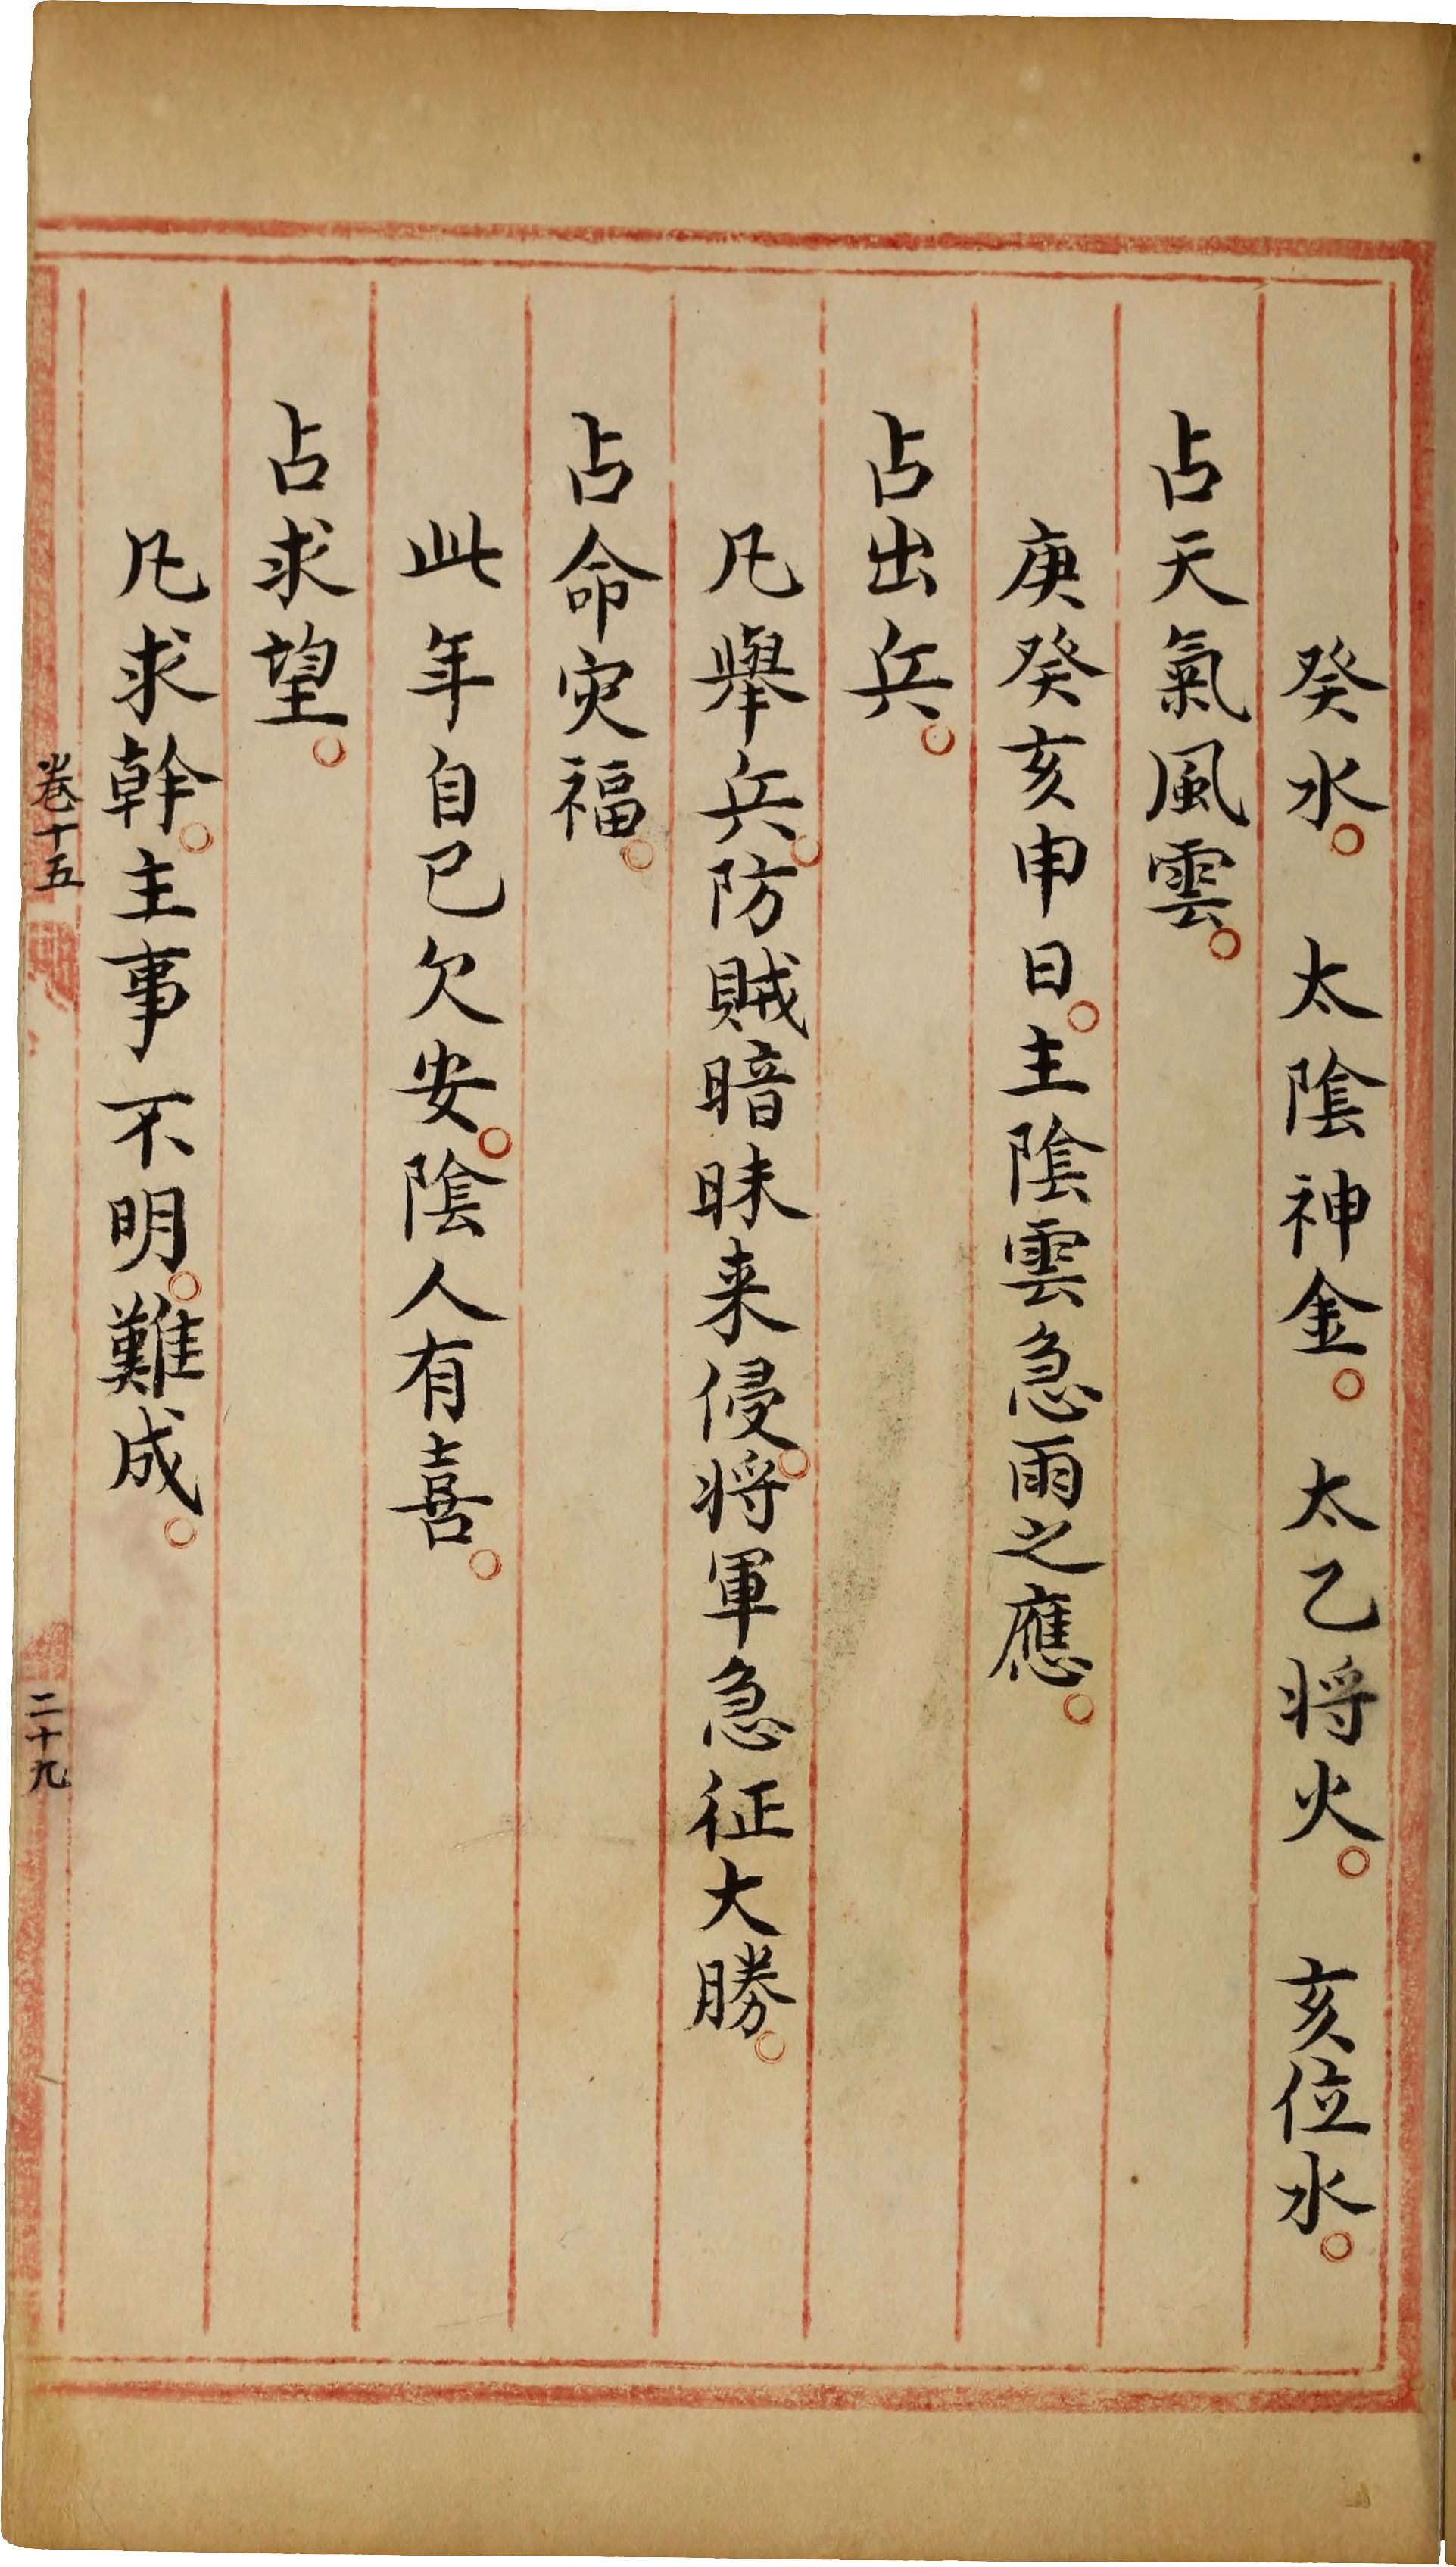 癸水。太陰神金。太乙将火。亥位水。
占天氣風雲。
庚癸亥申日。主陰雲急雨之應。
占出兵。
凡舉兵。防賊暗昧来侵。将軍急征大勝。
占命灾福。
此年自已欠安。陰人有喜。
占求望。
凡求幹。主事不明。難成。
卷十五
二十九